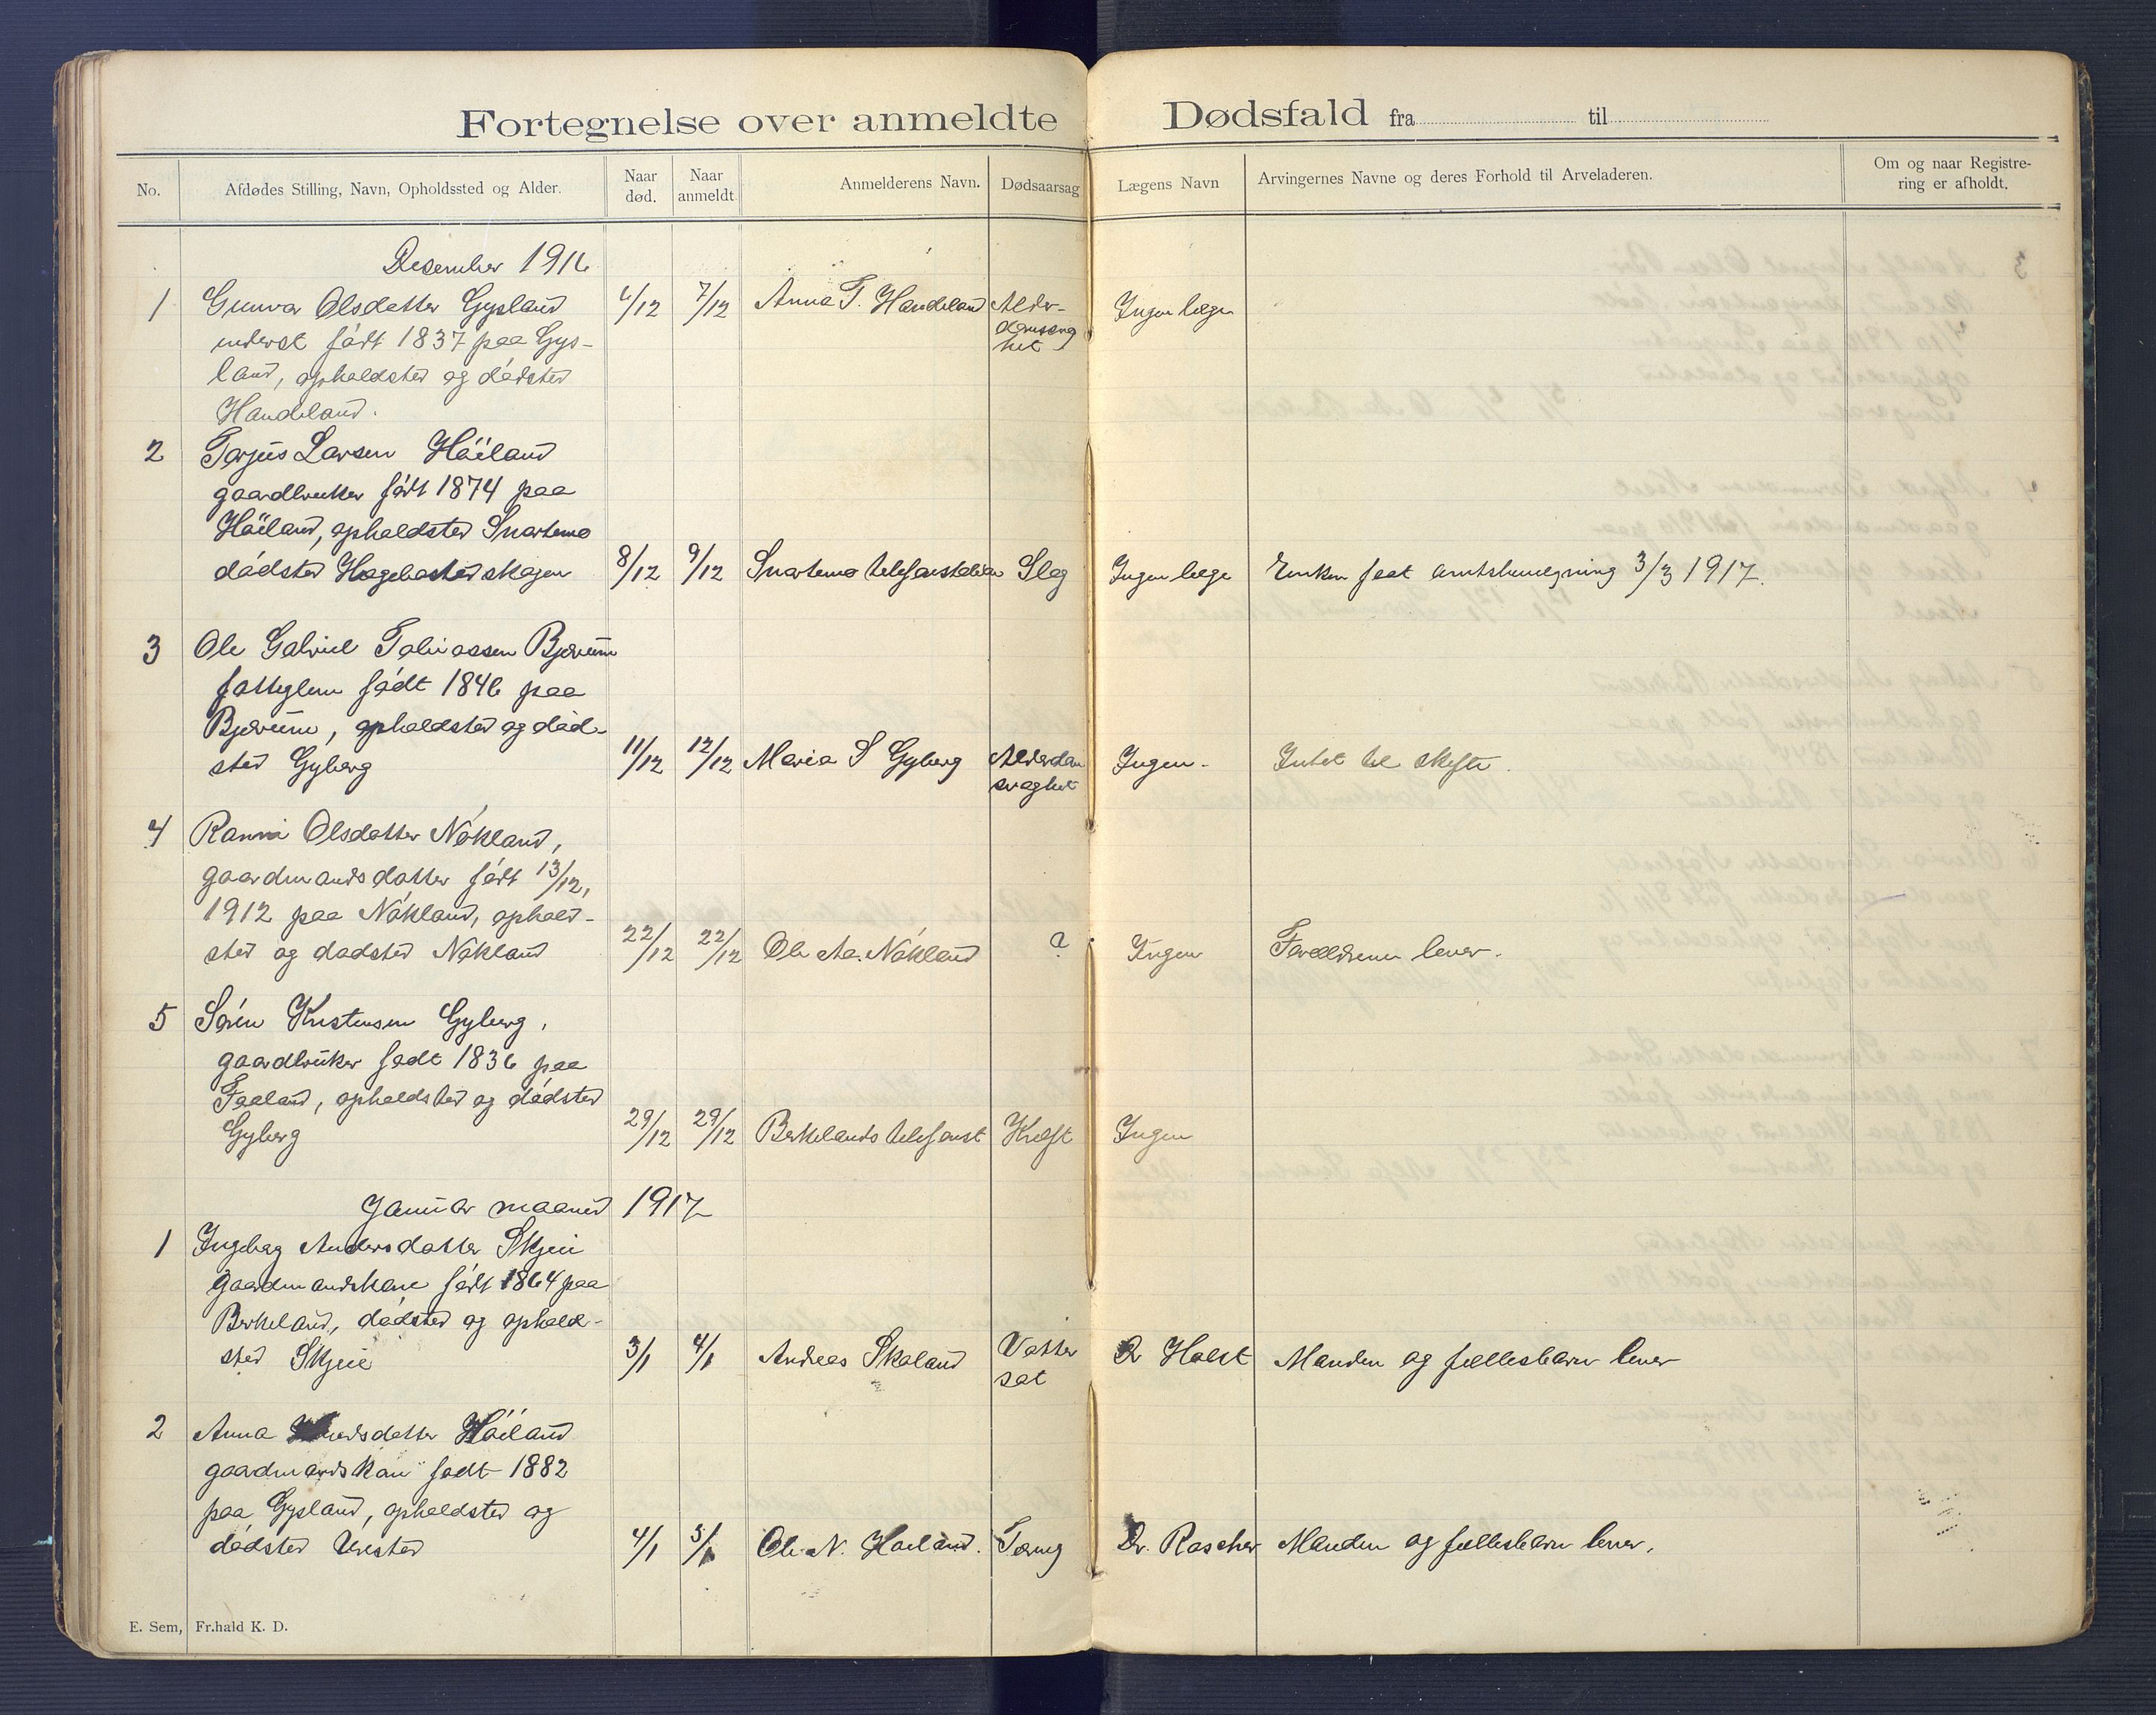 Fortegnelse over anmeldte Dødsfald fra til
No.
Afdødes Stilling, Navn, Opholdssted og Alder.
Naar død.
Naar anmeldt
Anmelderens Navn.
Dødsaarsag
Lægens Navn
Arvingernes Navne og deres Forhold til Arveladeren.
Om og naar Registre-
ring er afholdt.
Desember 1916
1 Gunvor Olsdatter Gysland 6/12 7/12 Anna T. Handeland Alder- Ingen læge
inderst født 1837 paa Gys- domssvag
land, opholdsted og dødsted het
Handeland.
2 Tarjus Larsen Höiland
gaardbruker født 1874 paa
Höiland, opholdsted Snartemo
dødsted Hægebostadskogen 8/12 9/12 Snartemo telefonstation Slag Ingen læge Enken faat amtsbevilgning 3/3 1917.
3 Ole Gabriel Tobiassen Bjærum
fatteglem født 1846 paa
Bjærum, opholdsted og død-
sted Gyberg 11/12 12/12 Maria S Gyberg Alderdom Ingen. Intet til skifte.
svaghet
4 Ranvei Olsdatter Nökland,
gaardmandsdatter født 13/12,
1912 paa Nökland, ophold-
sted og dødsted Nökland 22/12 22/12 Ole Aa. Nökland ? Ingen Forældrene lever.
5 Sören Kristensen Gyberg,
gaardbruker født 1836 paa
Faaland, opholdsted og dødsted
Gyberg 29/12 29/12 Birkelands telefonst Kræft Ingen
Januar maaned 1917
1 Ingeborg Andersdatter Skjeie
gaardmandskone født 1864 paa
Birkeland, dødsted og ophold-
sted Skjeie 3/1 4/1 Andreas Skoland Vatter Dr Holst Manden og fællesbarn lever
sot
2 Anna datter Höiland
gaardmandskone født 1882
paa Gysland, opholdsted og
dødsted Urestad 4/1 5/1 Ole N. Höiland. Tæring Dr. Roscher Manden og fællesbarn lever.
E. Sem, Fr.hald K. D.